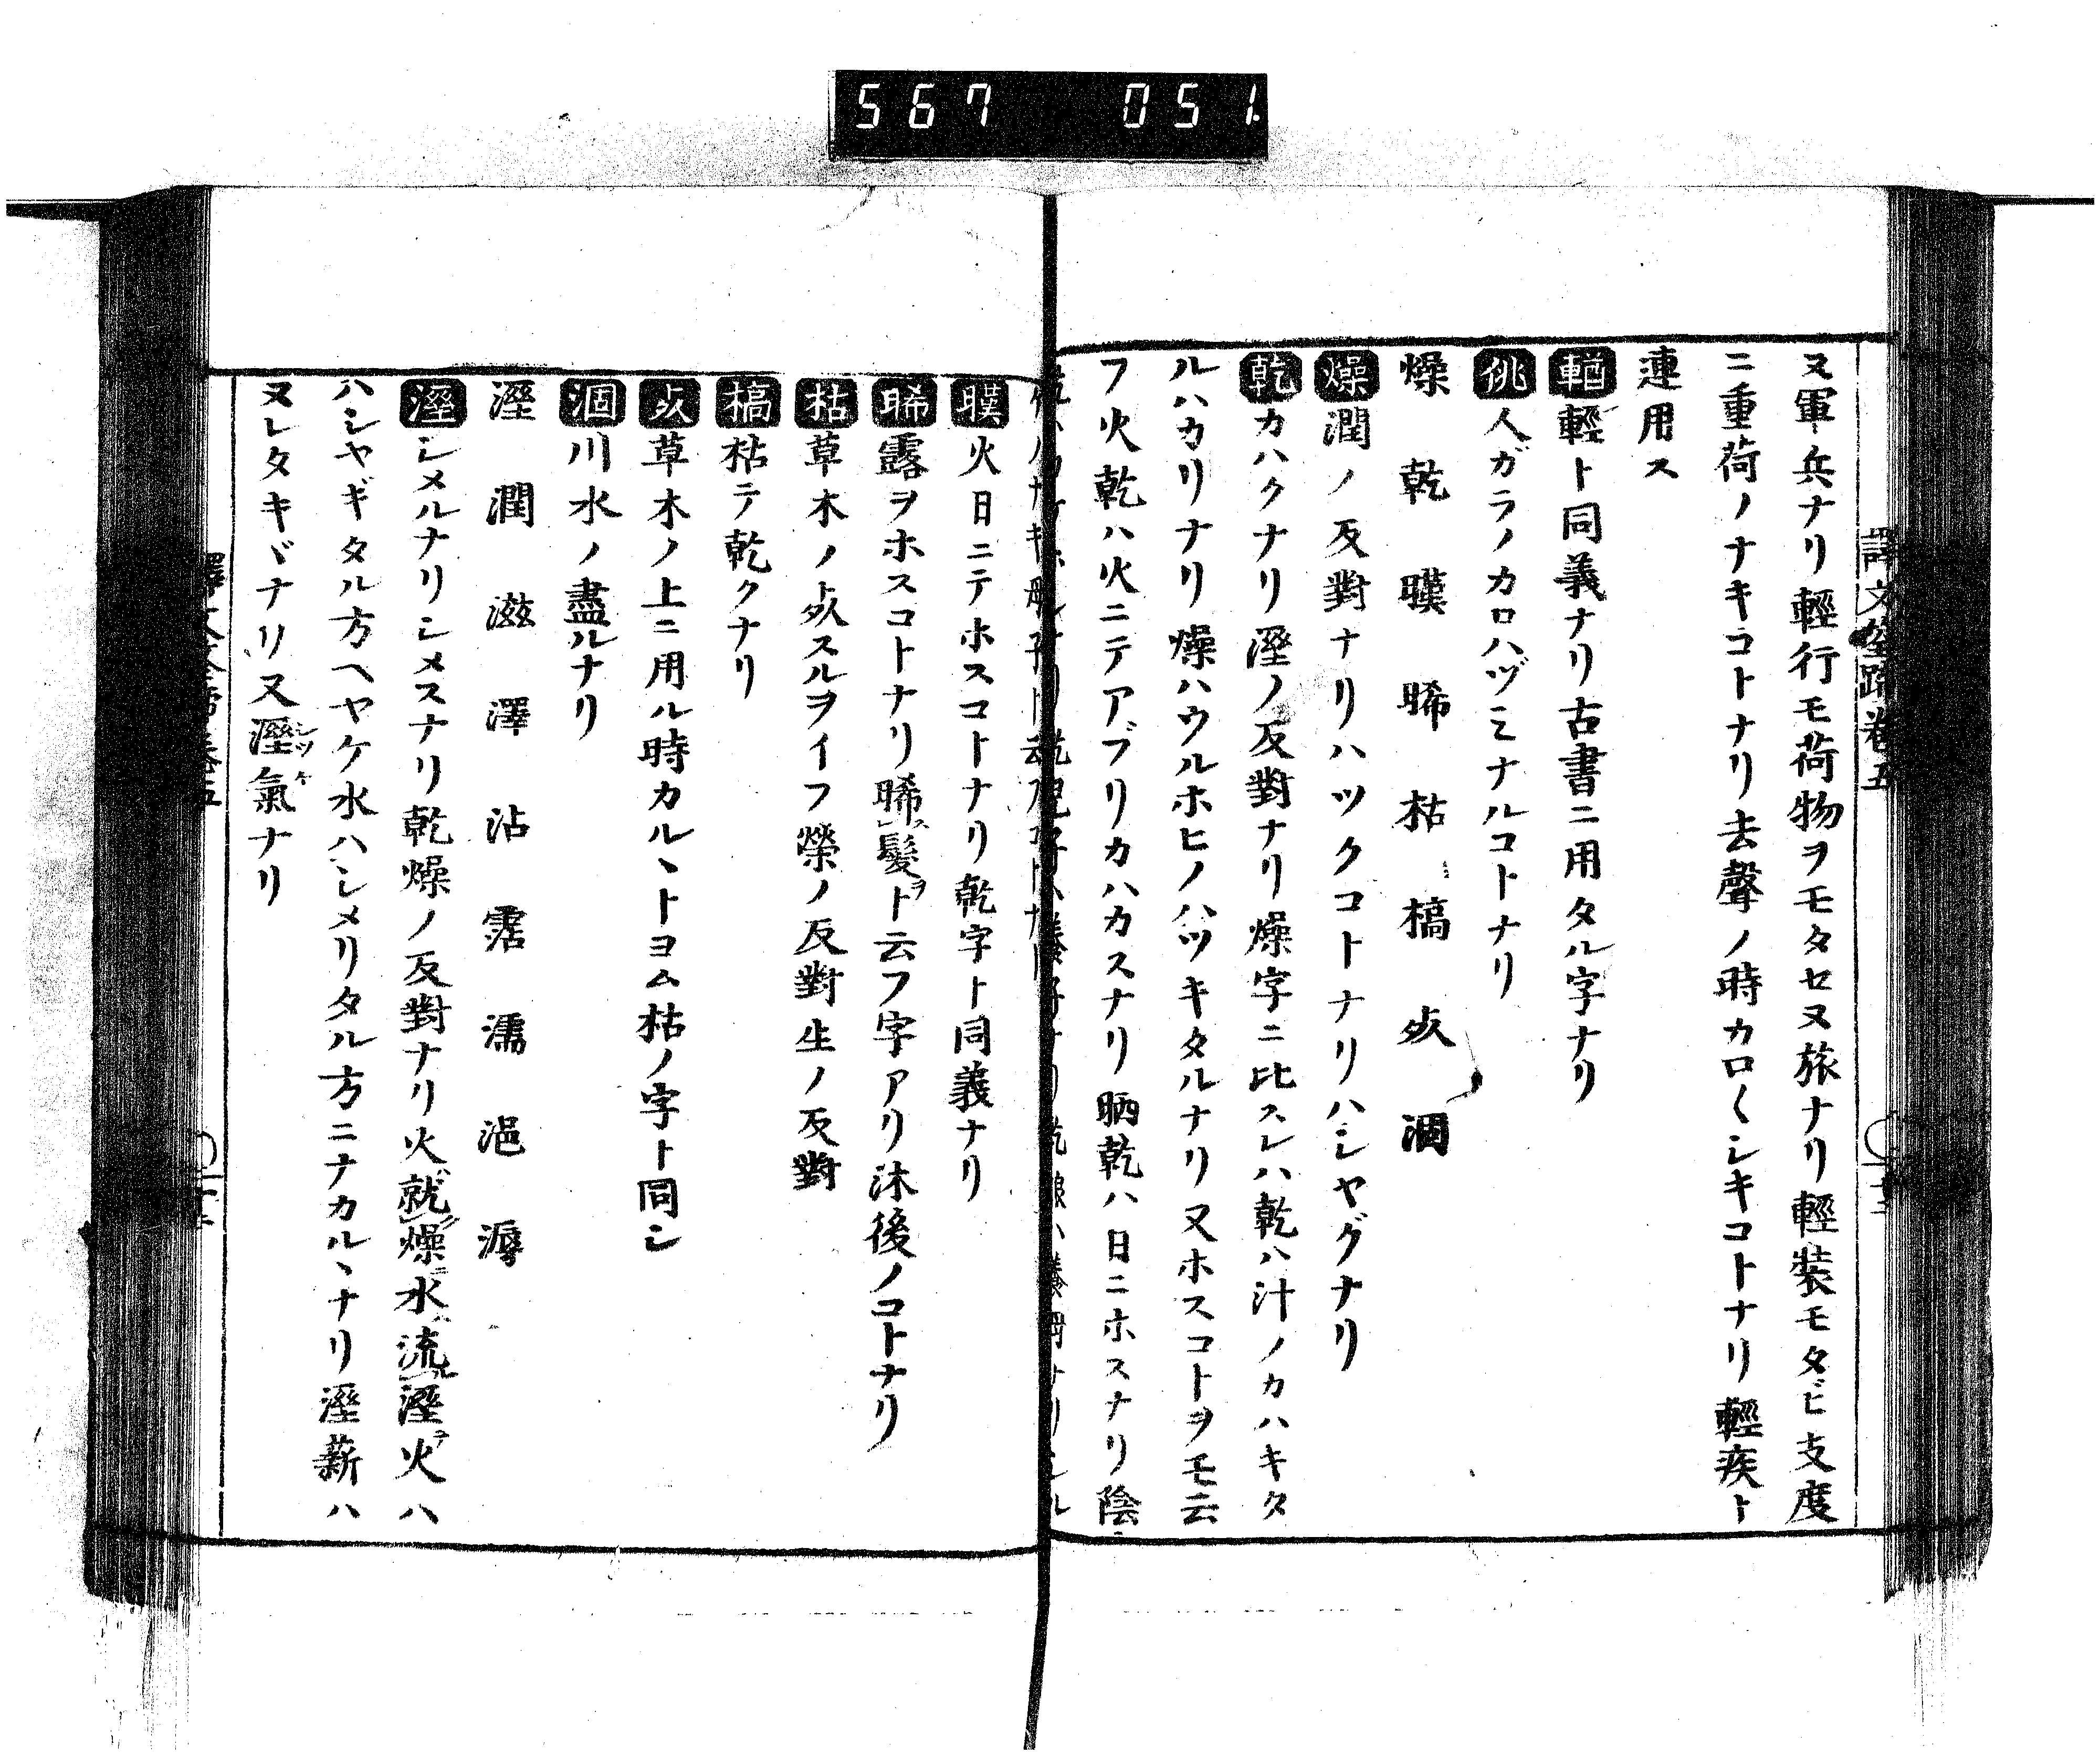 567 051
譯文筌蹄卷五
又軍兵ナリ輕行モ荷物ヲモタセヌ旅ナリ輕裝モタビ支度
ニ重荷ノナキコトナリ去聲ノ時カロ〱シキコトナリ輕疾ト
連用ス
輶輕ト同義ナリ古書ニ用タル字ナリ
佻人ガラノカロハヅミナルコトナリ
燥 乾 暵 晞 枯 槁 㱙 涸
燥潤ノ反對ナリハツクコトナリハシヤグナリ
乾カハクナリ溼ノ反對ナリ燥字ニ比スレハ乾ハ汁ノカハキタ
ルハカリナリ燥ハウルホヒノハツキタルナリ又ホスコトヲモ云
フ火乾ハ火ニテアブリカハカスナリ晒乾ハ日ニホスナリ陰
暵火日ニテホスコトナリ乾字ト同義ナリ
晞露ヲホスコトナリ晞髮ヲト云フ字アリ沐後ノコトナリ
枯草木ノ㱙スルヲイフ榮ノ反對生ノ反對
槁枯テ乾クナリ
㱙草木ノ上ニ用ル時カルヽトヨム枯ノ字ト同シ
涸川水ノ盡ルナリ
溼 潤 滋 澤 沾 霑 濡 浥 溽
溼シメルナリシメスナリ乾燥ノ反對ナリ火就燥水流溼火ハ
ハシヤギタル方ヘヤケ水ハシメリタル方ニナカルヽナリ溼薪ハ
ヌレタキヾナリ又溼氣ナリ